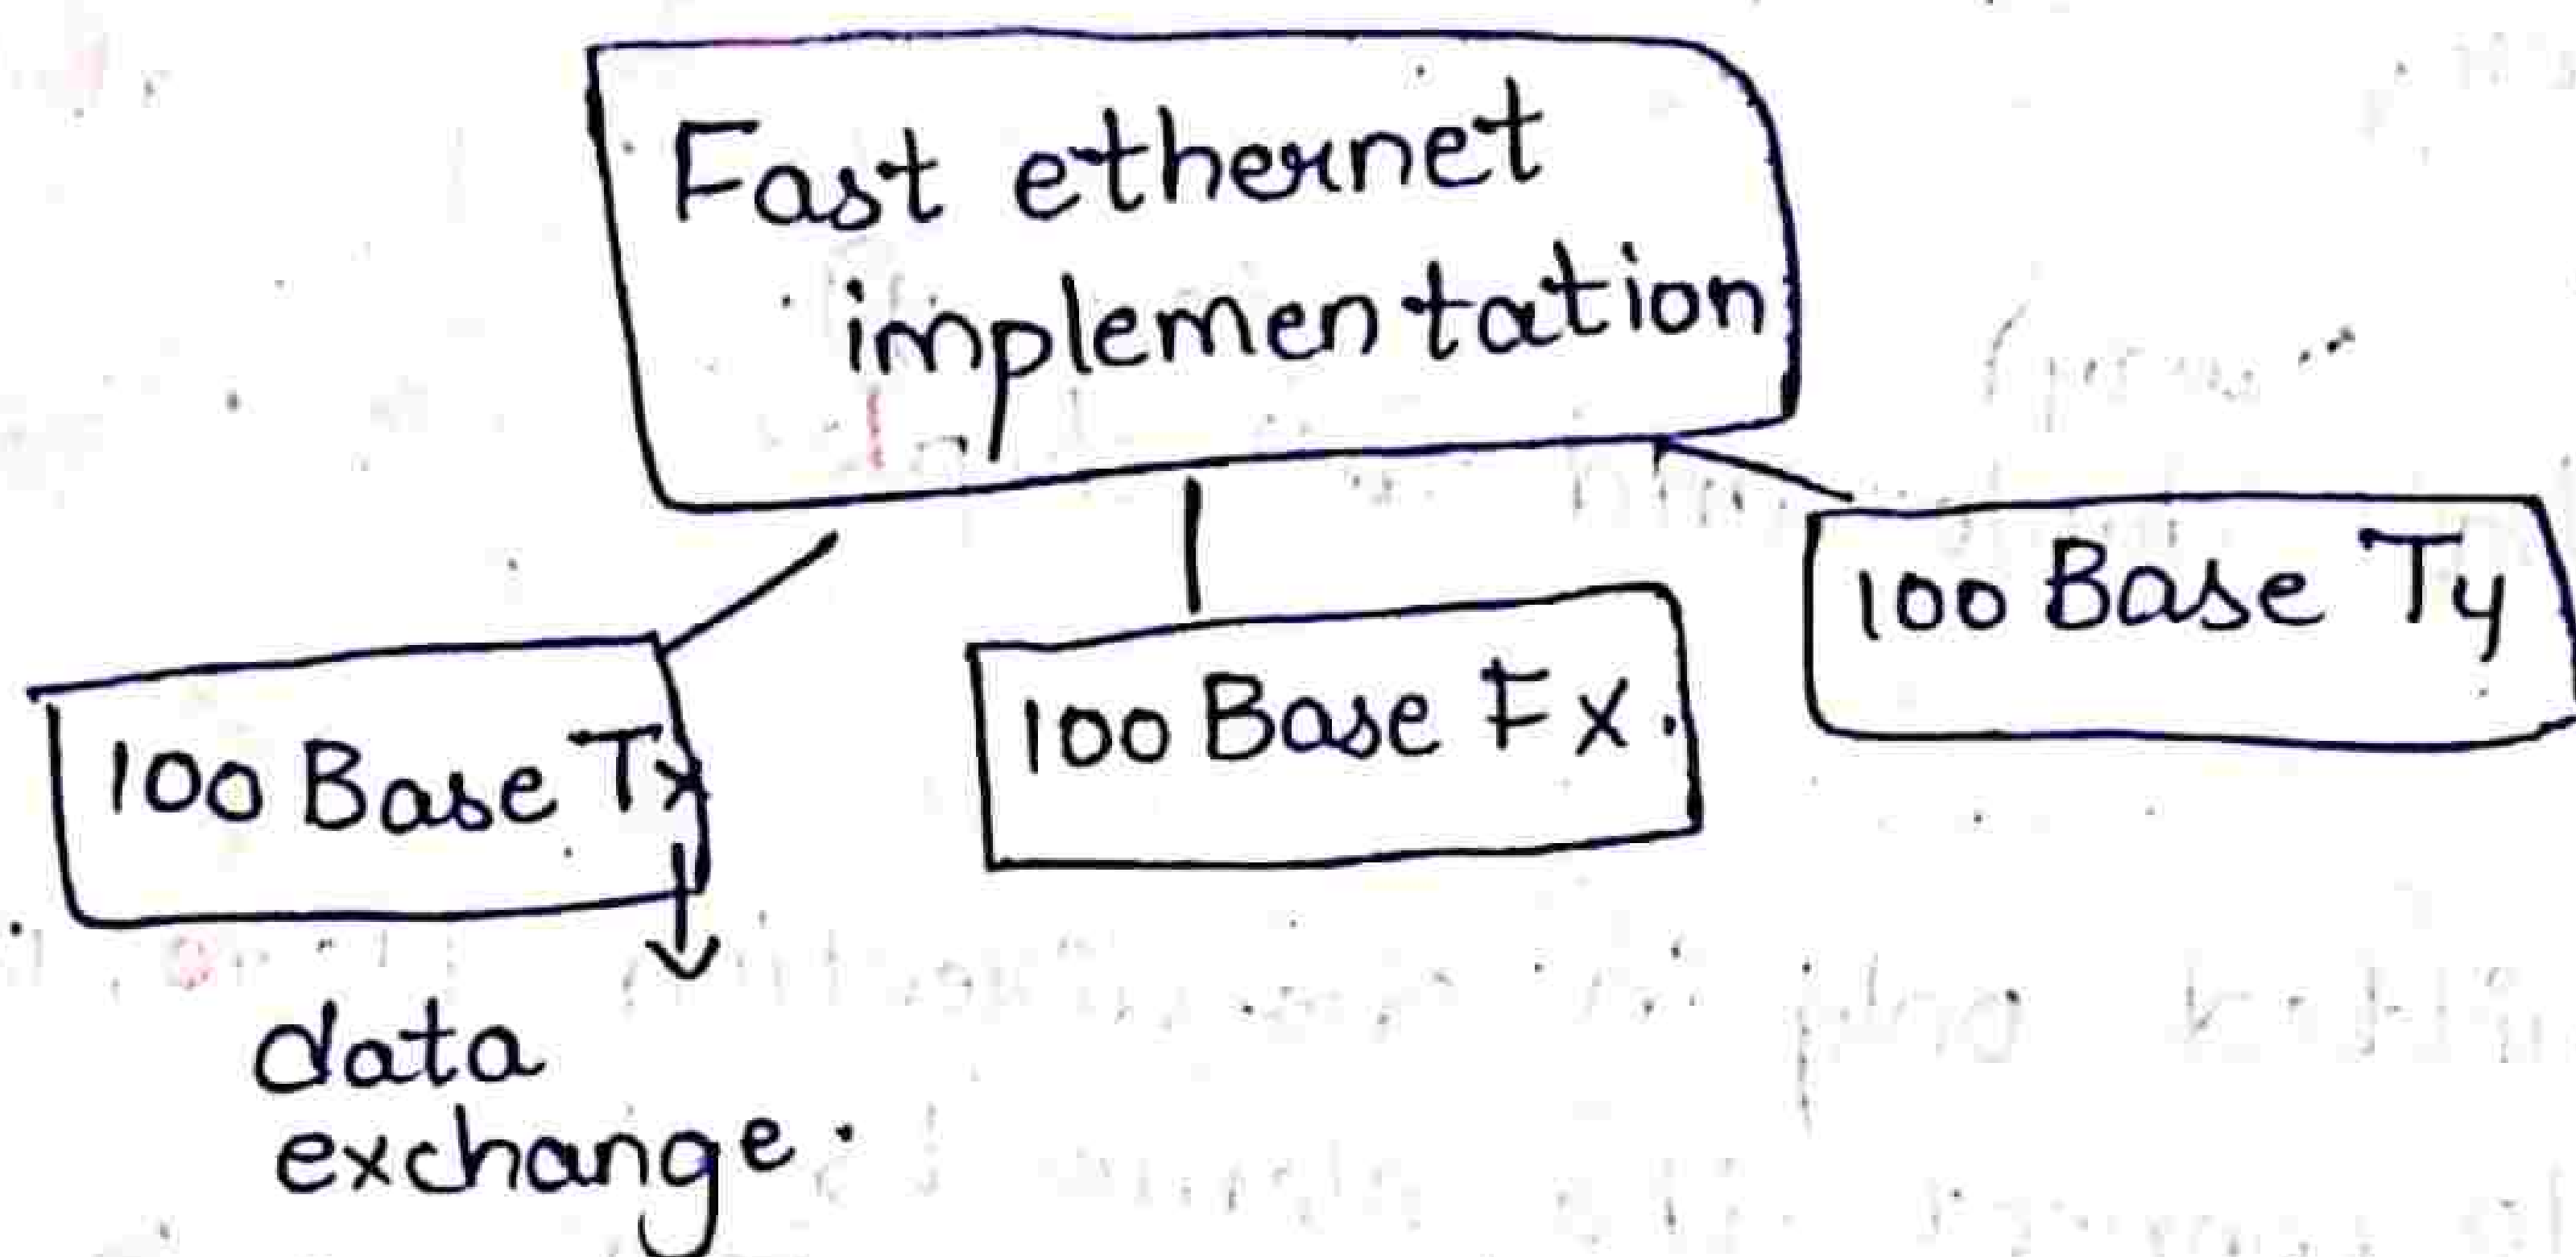 Fast ethernet
implementation
100 Base Tx
100 Base Fx.
100 Base T4
data
exchange.